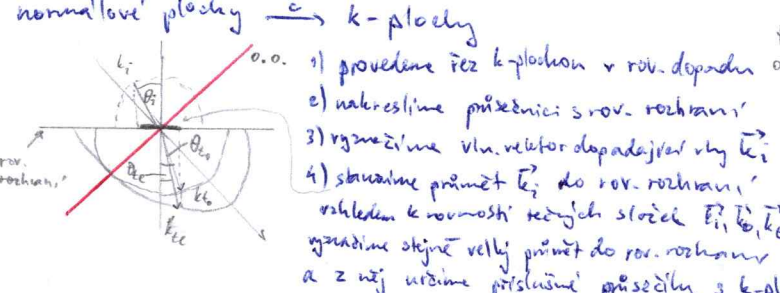 normálové plochy c→ k-plochy
1) provedeme řez k-plochou v rov. dopadu
2) nakreslíme průsečnici s rov. rozhraní
3) vyznačíme vln. vektor dopadající vlny k⃗i
4) stanovíme průmět k⃗i do rov. rozhraní
vzhledem k rovnosti tečných složek k⃗i, k⃗o, k⃗te
vyznačíme stejně velký průmět do rov. rozhraní
a z něj určíme příslušné průsečíky s k-pl
ki
θi
o.o.
rov.
rozhraní
θto
θte
kto
kte